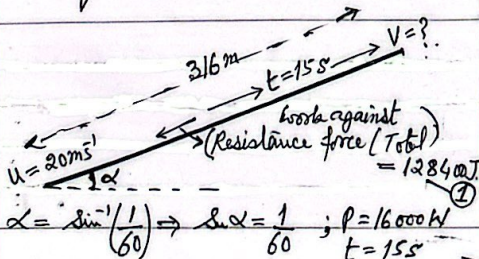 V=?
316m
t=15s
U=20ms⁻¹
work against
(Resistance force (Total)
= 128400J.
①
α
α = Sin⁻¹(1/60) ⇒ Sin α = 1/60 ; P=16000W
t=15s